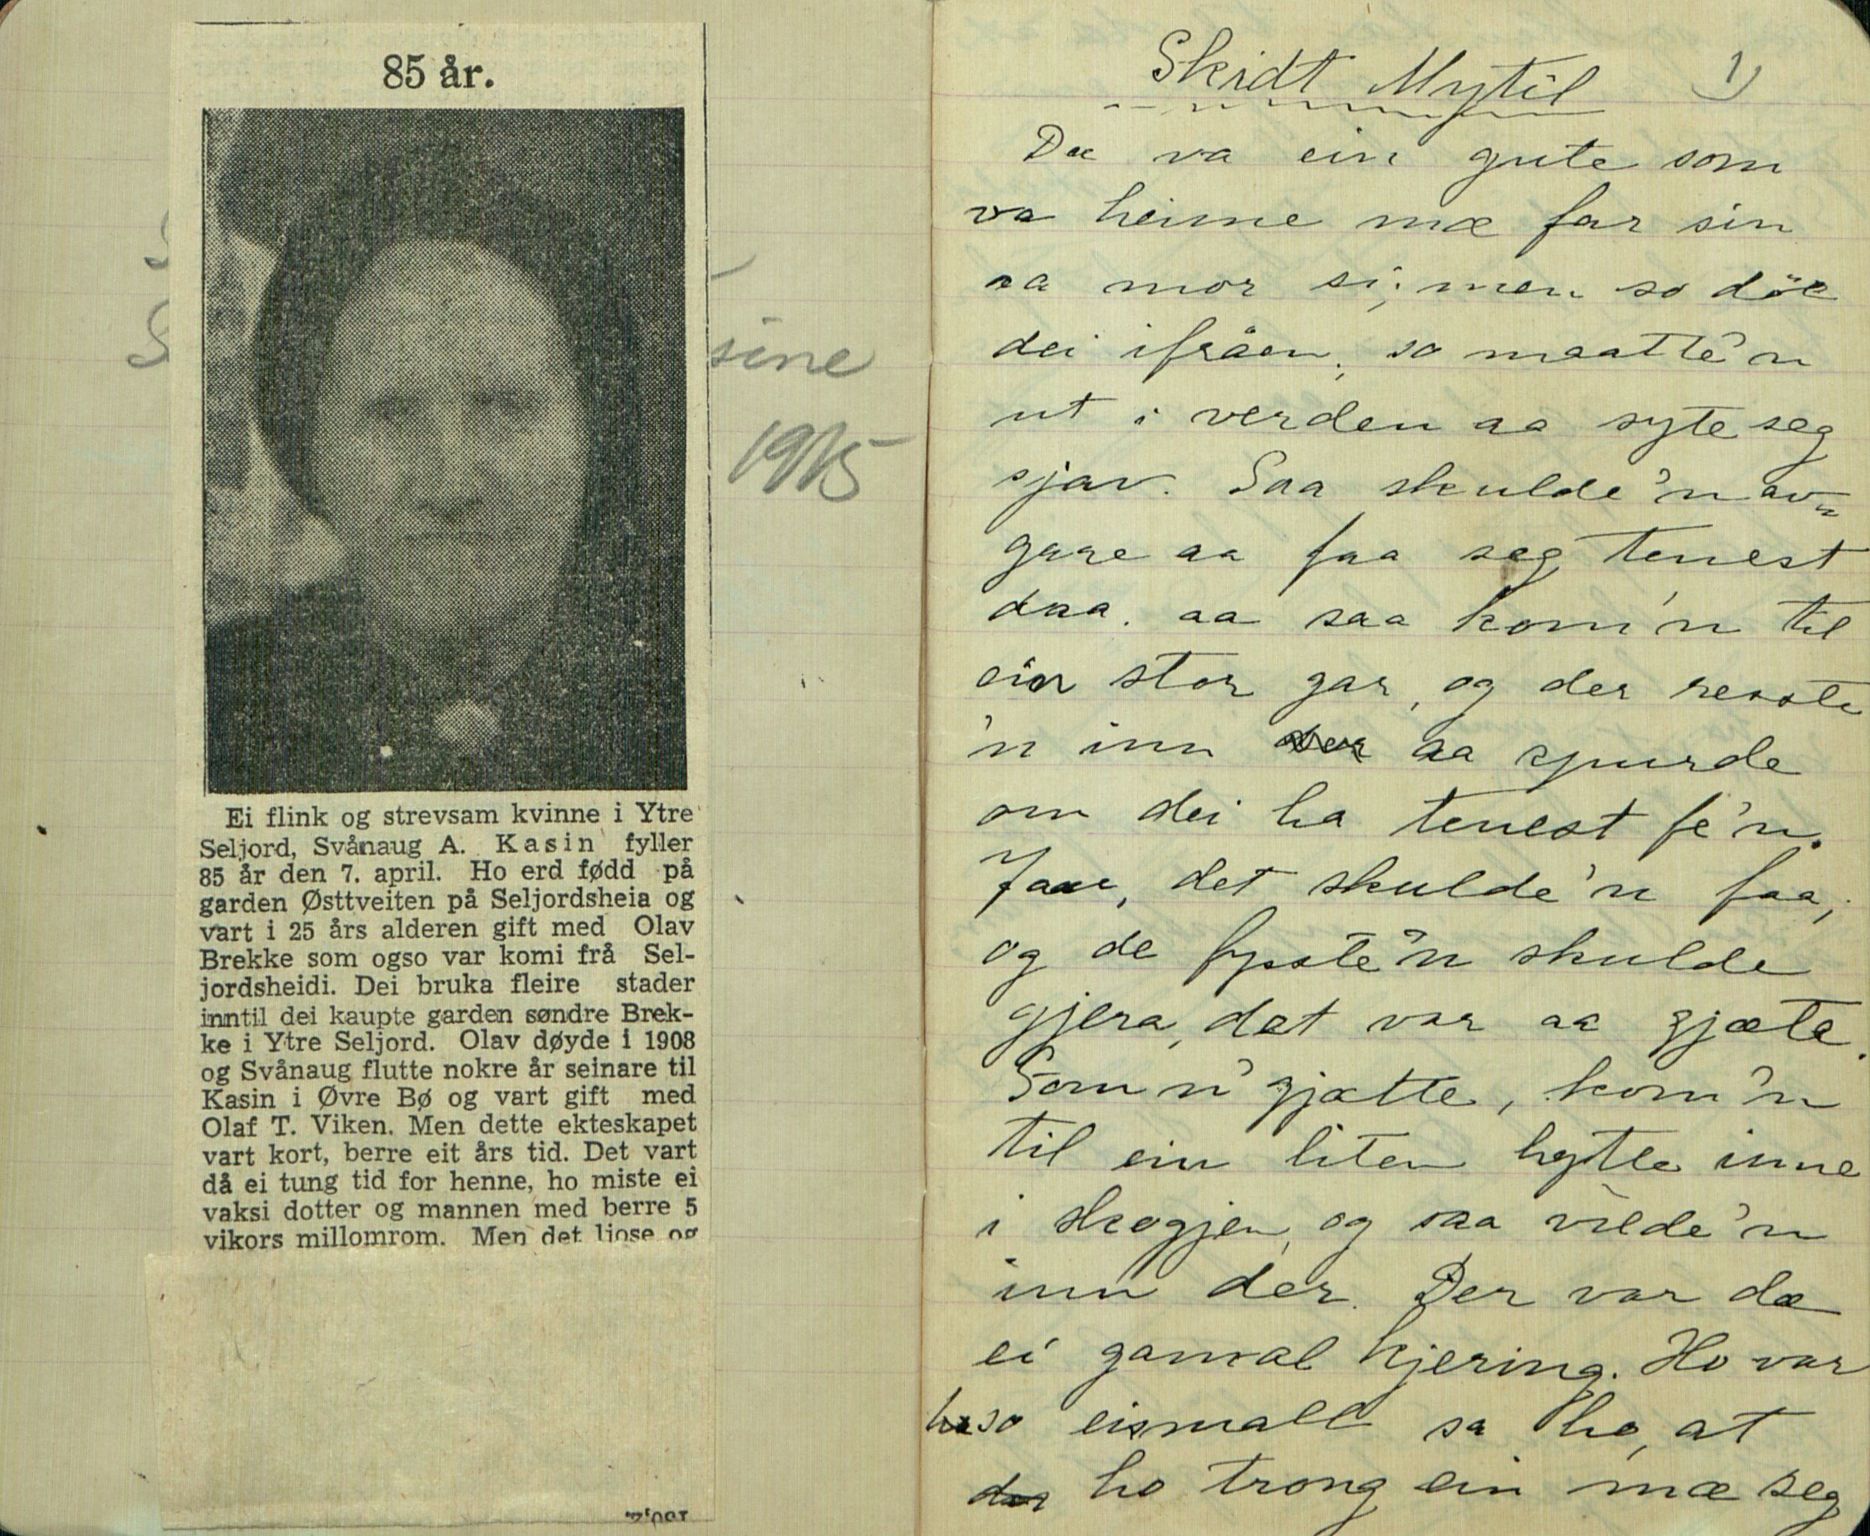 85 år.
Ei flink og strevsam kvinne i Ytre
Seljord, Svånaug A. Kasin fyller
85 år den 7. april. Ho erd fødd på
garden Østtveiten på Seljordsheia og
vart i 25 års alderen gift med Olav
Brekke som ogso var komi frå Sel-
jordsheidi. Dei bruka fleire stader
inntil dei kaupte garden søndre Brek-
ke i Ytre Seljord. Olav døyde i 1908
og Svånaug flutte nokre år seinare til
Kasin i Øvre Bø og vart gift med
Olaf T. Viken. Men dette ekteskapet
vart kort, berre eit års tid. Det vart
då ei tung tid for henne, ho miste ei
vaksi dotter og mannen med berre 5
vikors millomrom. Men det ljose og
sine
1915
Skidt Mytil 1)
Dæ va ein gute som
va heime mæ far sin
aa mor si; men so döe
dei ifråen, so maatte'n
ut i verden aa syte seg
sjav. Saa skulde'n av-
gare aa faa seg tenest
daa. aa saa kom'n til
ein stor gar, og der reiste
'n inn aa spurde
om dei ha tenest fe'n.
Jaa, det skulde'n faa,
og de fyste'n skulde
gjera, det var aa gjæte.
Som n' gjætte, kom'n
til ein liten hytte inne
i skogjen, og saa vilde'n
inn der. Der var dæ
ei gamal kjering. Ho var
so eismall sa ho, at
ho trong ein mæ seg